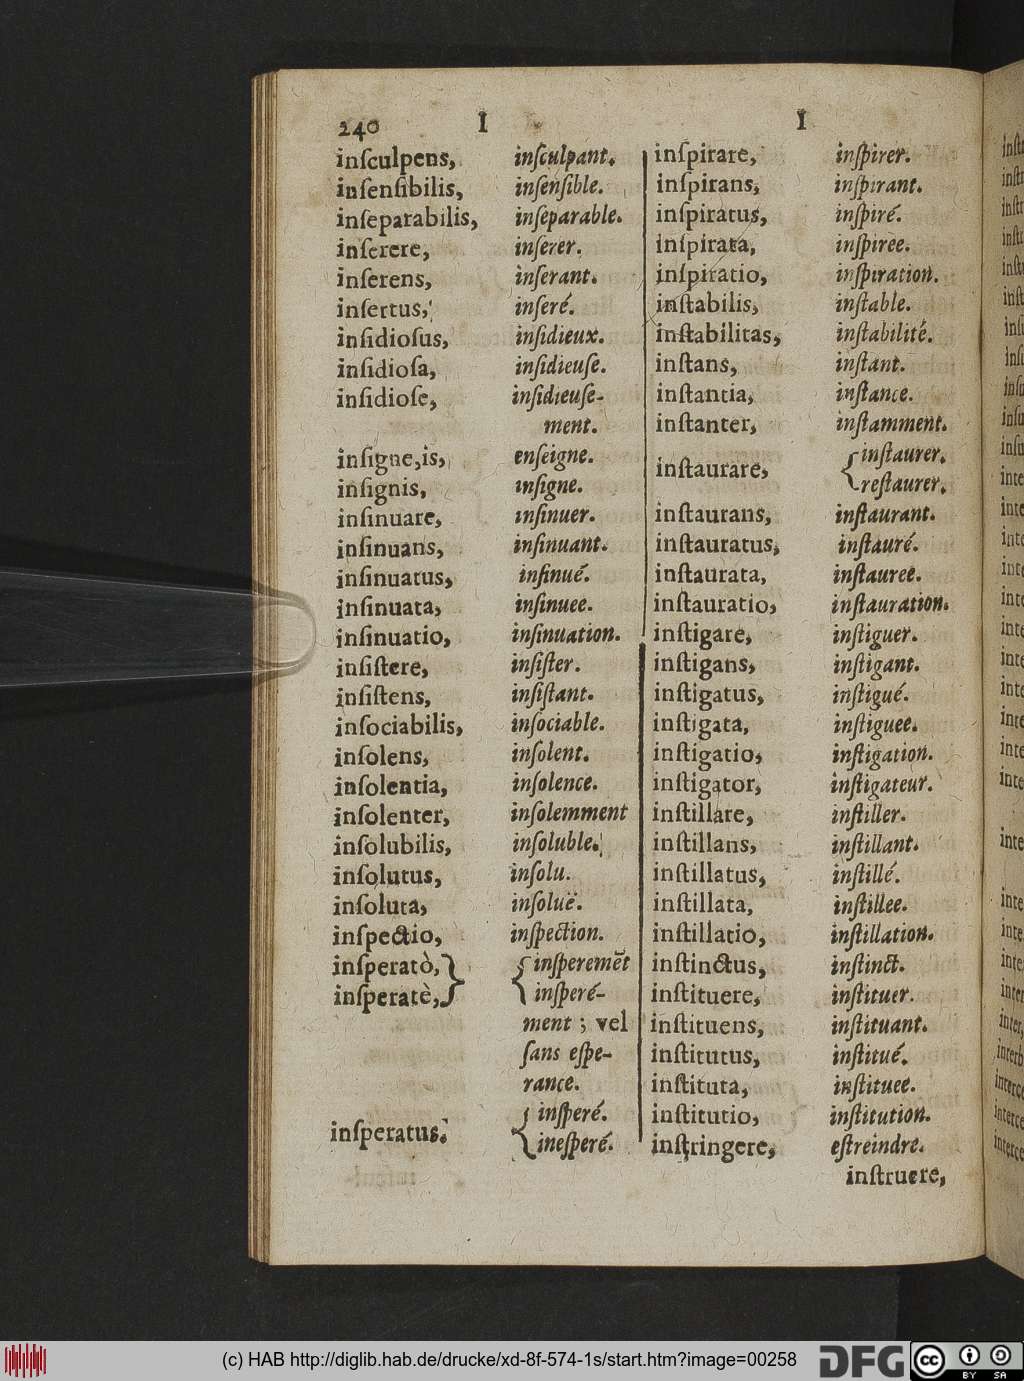 240 I I
inſculpens, inſculpant.
inſenſibilis, inſenſible.
inſeparabilis, inſeparable.
inſerere, inſerer.
inſerens, inſerant.
inſertus, inſeré.
inſidioſus, inſidieux.
inſidioſa, inſidieuſe.
inſidioſe, inſidieuſe-
ment.
inſigne,is, enſeigne.
inſignis, inſigne.
inſinuare, inſinuer.
inſinuans, inſinuant.
inſinuatus, inſinué.
inſinuata, inſinuee.
inſinuatio, inſinuation.
inſiſtere, inſiſter.
inſiſtens, inſiſtant.
inſociabilis, inſociable.
inſolens, inſolent.
inſolentia, inſolence.
inſolenter, inſolemment
inſolubilis, inſoluble.
inſolutus, inſolu.
inſoluta, inſoluë.
inſpectio, inſpection.
inſperatò, } { inſperemẽt
inſperatè, inſperé-
ment ; vel
ſans eſpe-
rance.
inſperatus. { inſperé.
ineſperé.
inſpirare, inſpirer.
inſpirans, inſpirant.
inſpiratus, inſpiré.
inſpirata, inſpiree.
inſpiratio, inſpiration.
inſtabilis, inſtable.
inſtabilitas, inſtabilité.
inſtans, inſtant.
inſtantia, inſtance.
inſtanter, inſtamment.
inſtaurare, { inſtaurer.
reſtaurer.
inſtaurans, inſtaurant.
inſtauratus, inſtauré.
inſtaurata, inſtauree.
inſtauratio, inſtauration.
inſtigare, inſtiguer.
inſtigans, inſtigant.
inſtigatus, inſtigué.
inſtigata, inſtiguee.
inſtigatio, inſtigation.
inſtigator, inſtigateur.
inſtillare, inſtiller.
inſtillans, inſtillant.
inſtillatus, inſtillé.
inſtillata, inſtillee.
inſtillatio, inſtillation.
inſtinctus, inſtinct.
inſtituere, inſtituer.
inſtituens, inſtituant.
inſtitutus, inſtitué.
inſtituta, inſtituee.
inſtitutio, inſtitution.
inſtringere, eſtreindre.
inſtruere,
(c) HAB http://diglib.hab.de/drucke/xd-8f-574-1s/start.htm?image=00258
DFG
cc BY SA